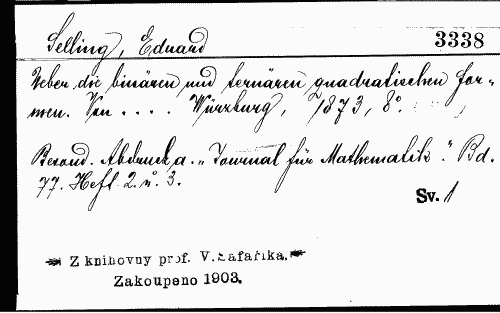 Selling, Eduard 3338
Ueber die binären und ternären quadratischen For-
men. Von .... Würzburg, 1873, 8°.
Besond. Abdruck a. „Journal für Mathematik". Bd.
77. Heft 2. u. 3.
Sv. 1
Z knihovny prof. V. Šafaříka.
Zakoupeno 1903.